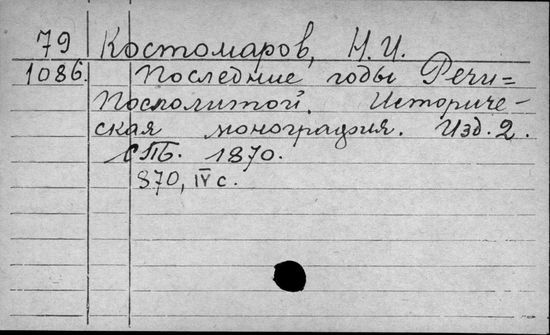 79 Костомаров, Н.И.
1086. Последние годы Речи=
Посполитой. Историче-
ская монография. Изд. 2.
СПБ. 1870.
870, IV с.